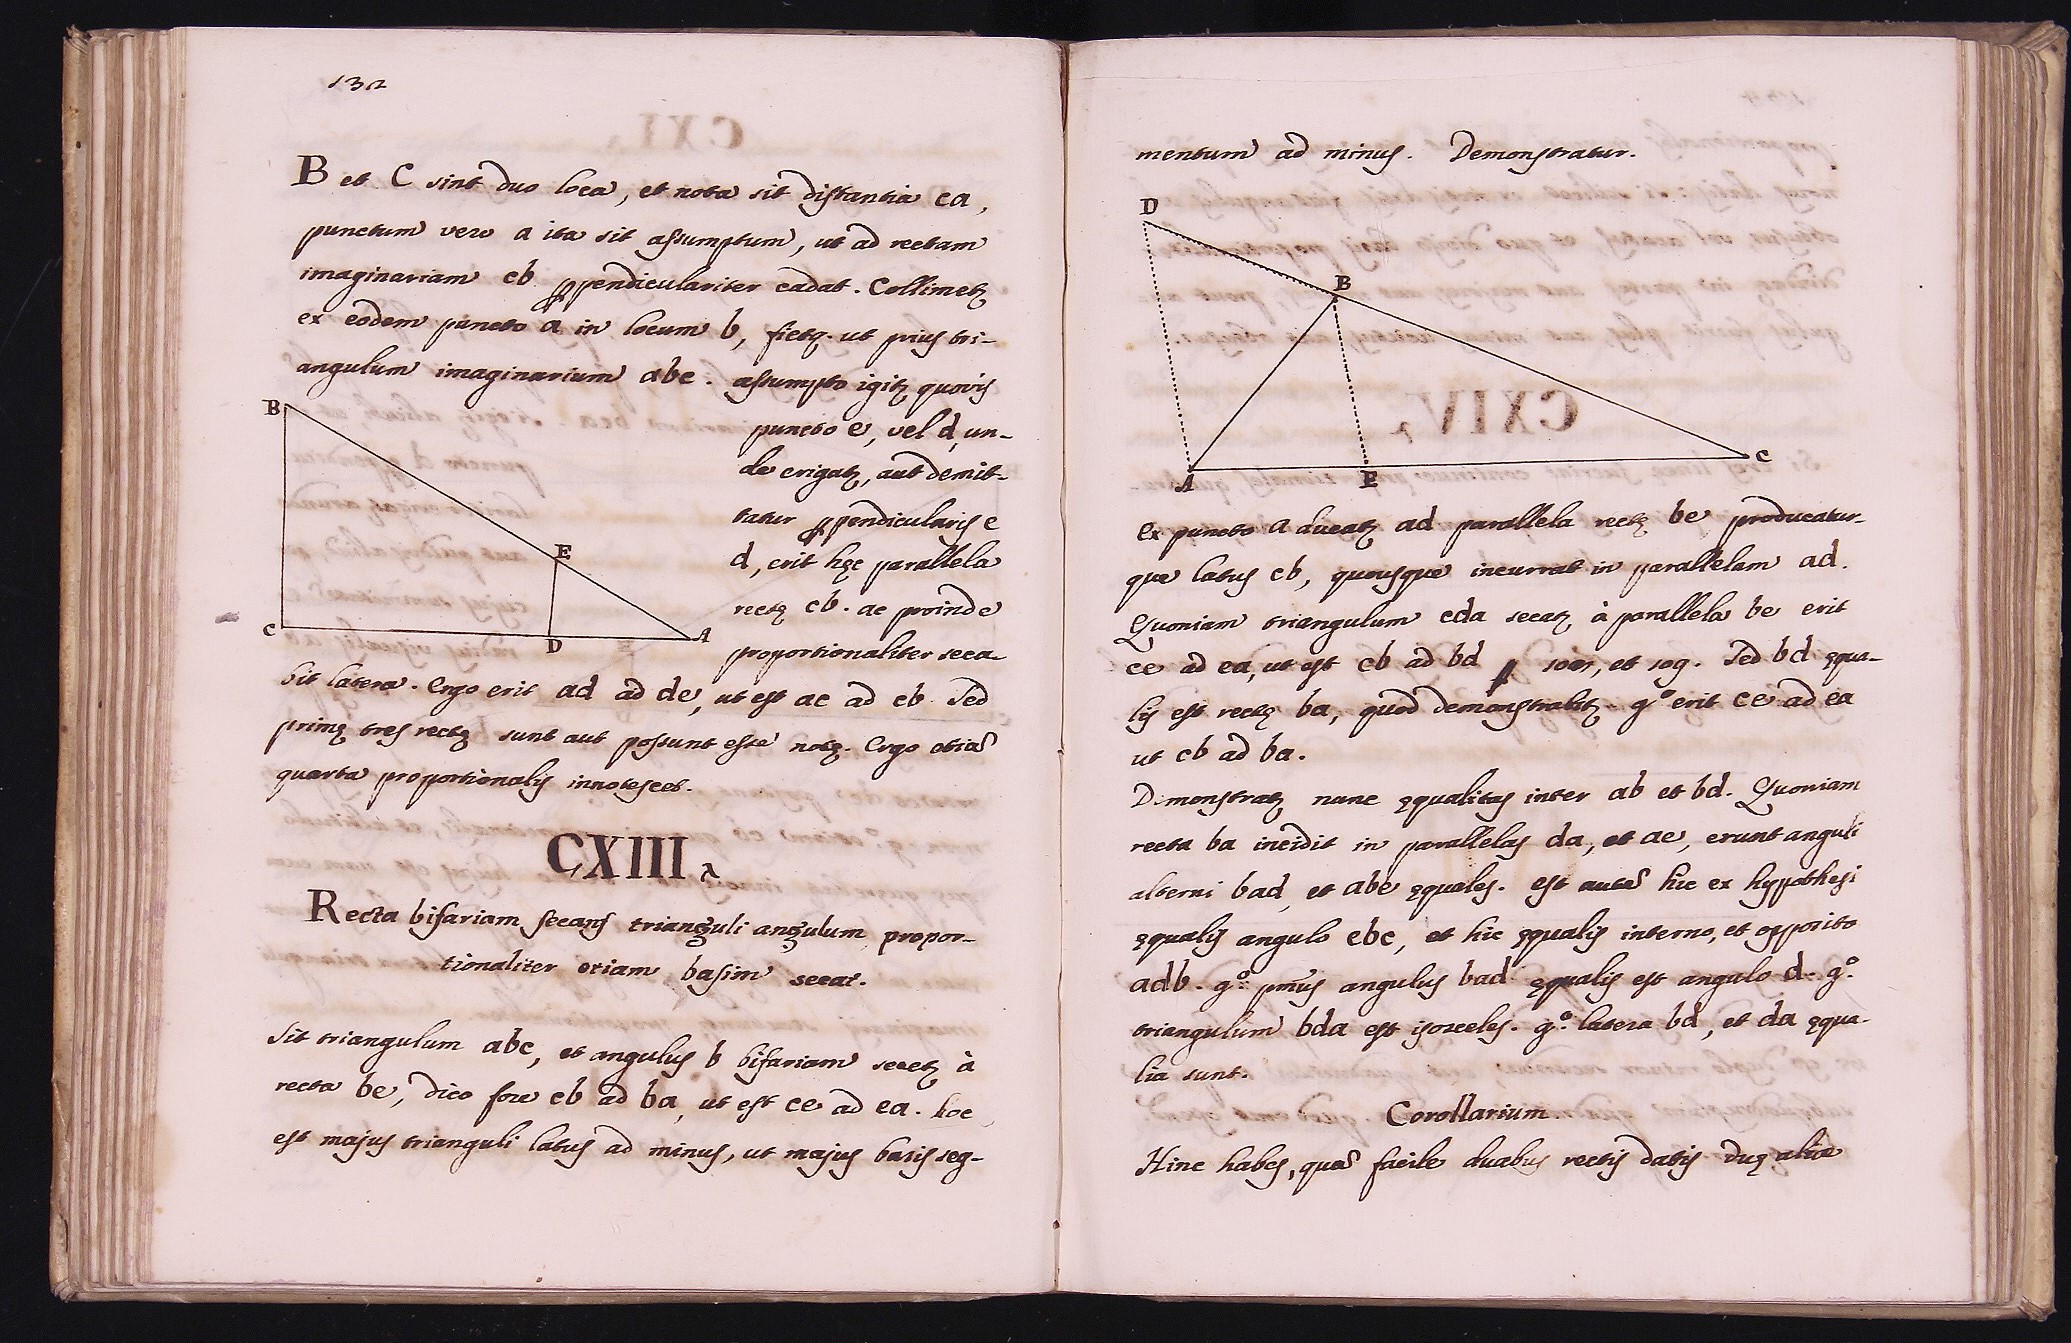 132
B et C sint duo loca, et nota sit distantia ca,
punctum vero a ita sit assumptum, ut ad rectam
imaginariam cb ꝑpendiculariter cadat. Collimetꝫ
ex eodem puncto a in locum b, fietꝗ. ut prius tri-
angulum imaginarium abc. assumpto igitꝫ quovis
puncto e, vel d, un-
de erigatꝫ, aut demit-
tatur ꝑpendicularis e
d, erit hęc parallela
rectę cb. ac proinde
proportionaliter seca-
bit latera. Ergo erit ad ad de, ut est ac ad cb. Sed
primę tres rectę sunt aut possunt esse notę. Ergo etiā
quarta proportionalis innotescet.
B
E
C
D
A
CXIII
Recta bifariam secans trianguli angulum propor-
tionaliter etiam basim secat.
Sit triangulum abc, et angulus b bifariam secetꝫ à
recta be, dico fore cb ad ba, ut est ce ad ea. hoc
est majus trianguli latus ad minus, ut majus basis seg-
mentum ad minus. Demonstratur.
D
B
C
A
E
Ex puncto a ducatꝫ ad parallela rectę be producatur-
que latus cb, quousque incurrat in parallelam ad.
Quoniam triangulum cda secatꝫ à parallela be erit
ce ad ea, ut est cb ad bd ꝑ et 109. Sed bd ęqua-
lis est rectę ba, quod demonstrabitꝫ gº. erit ce ad ea
ut cb ad ba.
Demonstratꝫ nunc ęqualitas inter ab et bd. Quoniam
recta ba incidit in parallelas da, et ae, erunt anguli
alterni bad, et abe ęquales. est autē hic ex hypothesi
ęqualis angulo ebc, et hic ęqualis interno, et opposito
adb. gº. angulus bad ęqualis est angulo d. gº.
triangulum bda est isosceles. gº. latera bd, et da ęqua-
lia sunt.
Corollarium.
Hinc habes, quā facile duabus rectis datis duę alię